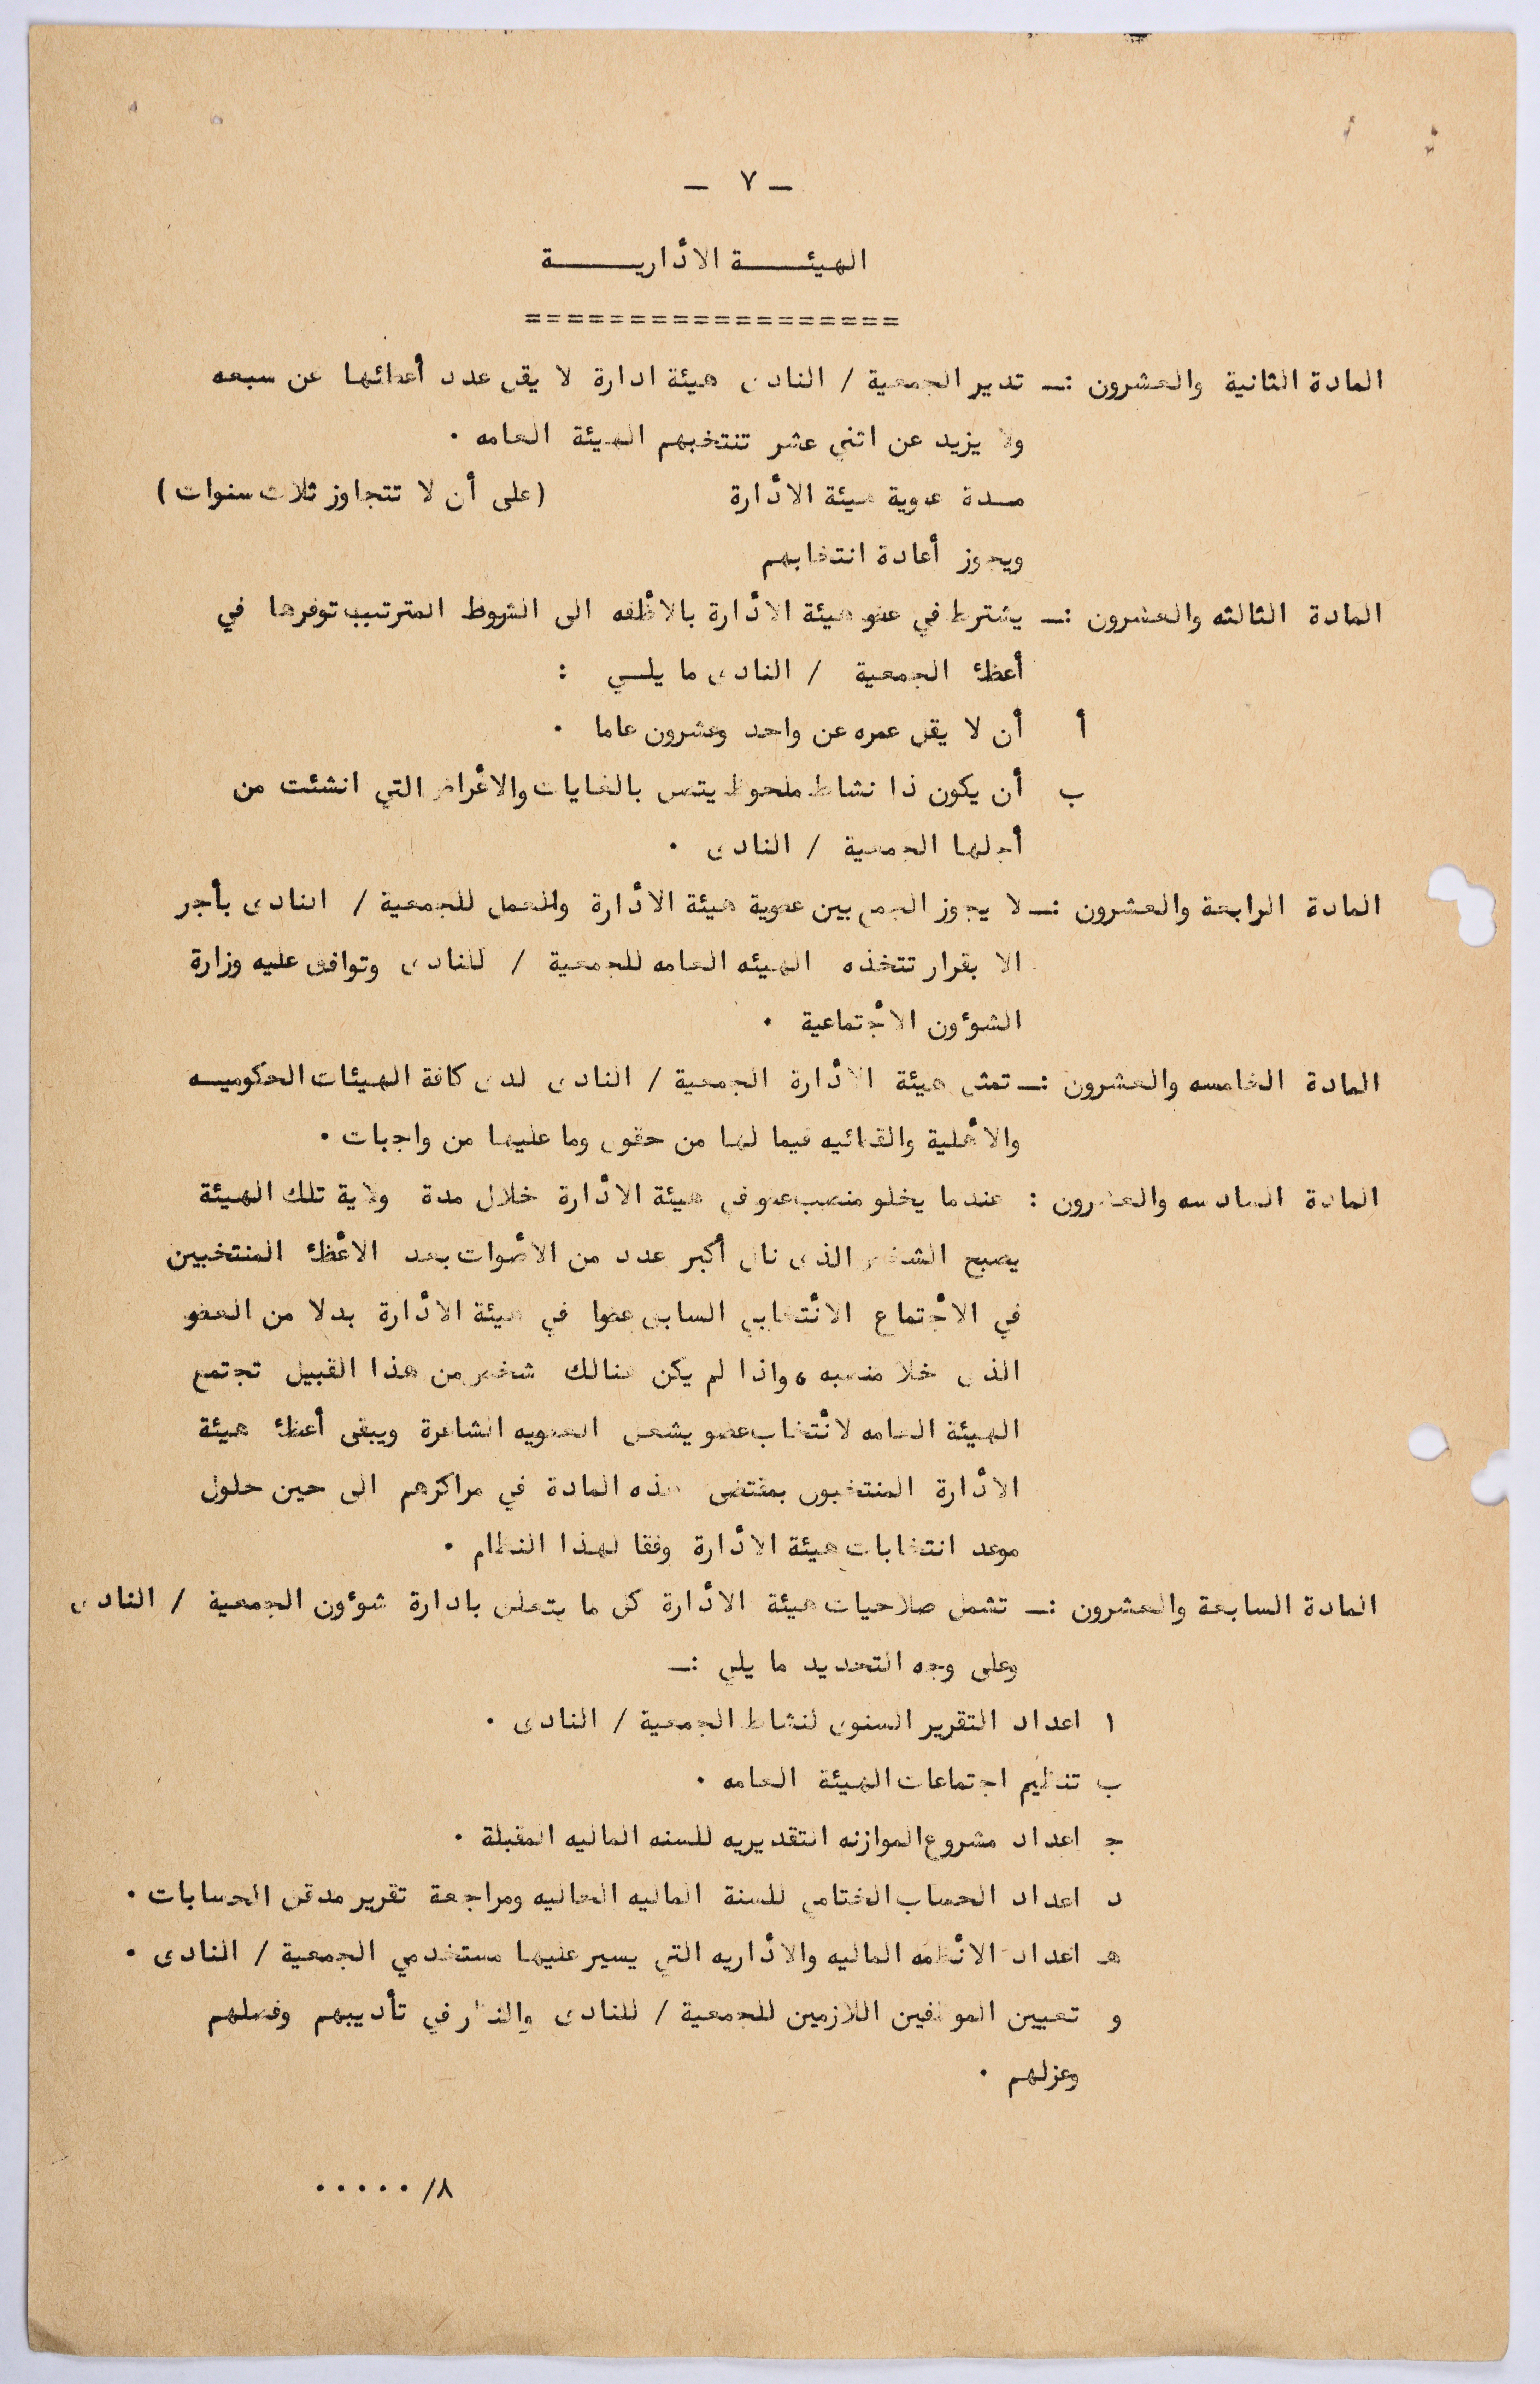 - ٧ -
الهيئــــة الأداريــــة
==================
المادة الثانية والعشرون :ـ تدير الجمعية / النادى هيئة ادارة لا يقل عدد أعضائها عن سبعه
ولا يزيد عن اثني عشر تنتخبهم الهيئة العامه .
مـدة عضوية هيئة الأدارة (على أن لا تتجاوز ثلاث سنوات)
ويجوز أعادة انتخابهم
المادة الثالثه والعشرون :ـ يشترط في عضو هيئة الأدارة بالاظفه الى الشروط المترتب توفرها في
أعظئ الجمعية / النادى ما يلـي :
أ أن لا يقل عمره عن واحد وعشرون عاما .
ب أن يكون ذا نشاط ملحوظ يتصل بالغايات والأغراض التي انشئت من
أجلها الجمعية / النادى .
المادة الرابعة والعشرون :ـ لا يجوز الجمع بين عضوية هيئة الأدارة والعمل للجمعية / النادى بأجر
الا بقرار تتخذه الهيئه العامه للجمعية / للنادى وتوافق عليه وزارة
الشوؤن الأجتماعية .
المادة الخامسه والعشرون :ـ تمثل هيئة الأدارة الجمعية / النادى لدى كافة الهيئات الحكوميـه
والأهلية والقضائيه فيما لها من حقوق وما عليها من واجبات .
المادة السادسه والعشرون : عندما يخلو منصب عضو في هيئة الأدارة خلال مدة ولاية تلك الهيئة
يصبح الشخص الذى نال أكبر عدد من الأصوات بعد الأعظئ المنتخبين
في الأجتماع الأنتخابي السابق عضوا في هيئة الأدارة بدلا من العضو
الذى خلا منصبه ، واذا لم يكن هنالك شخص من هذا القبيل تجتمع
الهيئة العامه لأنتخاب عضو يشغل العضويه الشاغرة ويبقى أعظئ هيئة
الأدارة المنتخبون بمقتضى هذه المادة في مراكزهم الى حين حلول
موعد انتخابات هيئة الأدارة وفقا لهذا النظام .
المادة السابعة والعشرون :ـ تشمل صلاحيات هيئة الأدارة كل ما يتعلق بادارة شوؤن الجمعية / النادى
وعلى وجه التحديد ما يلي :ـ
ا اعداد التقرير السنوى لنشاط الجمعية / النادى .
ب تنظيم اجتماعات الهيئة العامه .
ج اعداد مشروع الموازنه التقديريه للسنه الماليه المقبلة .
د اعداد الحساب الختامي للسنة الماليه الحاليه ومراجعة تقرير مدقق الحسابات .
هـ اعداد الأنظمه الماليه والأداريه التي يسير عليها مستخدمي الجمعية / النادى .
و تعيين الموظفين اللازمين للجمعية / للنادى والنظر في تأديبهم وفصلهم
وعزلهم .
٨/ . . . . .